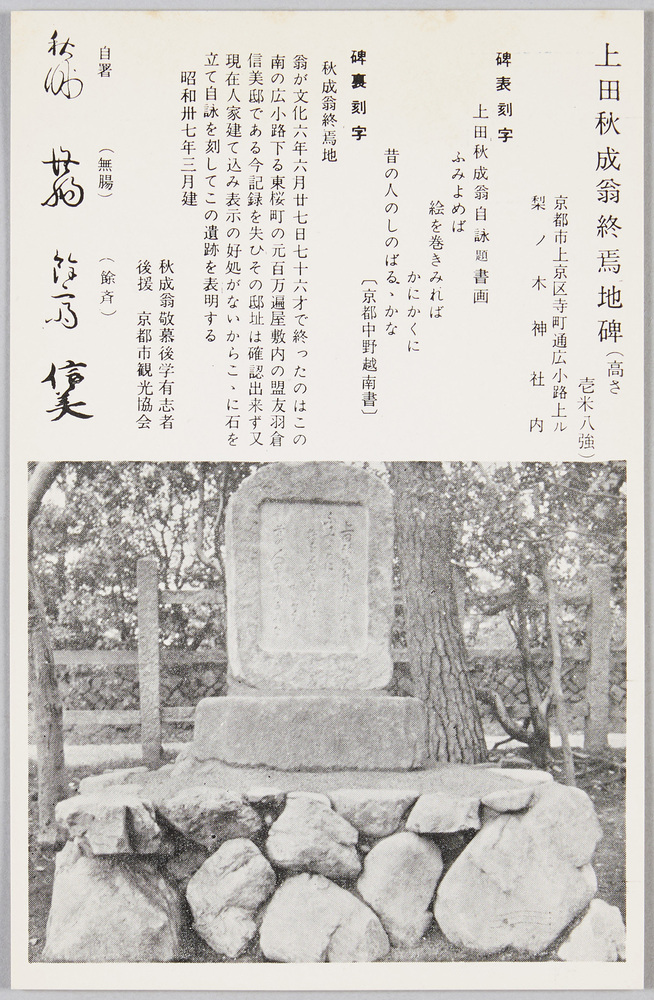 上田秋成翁終焉地碑(高さ
壱米八強)
京都市上京区寺町通広小路上ル
梨ノ木神社内
碑表刻字
上田秋成翁自詠題書画
ふみよめば
絵を巻きみれば
かにかくに
昔の人のしのばるゝかな
〔京都中野越南書〕
碑裏刻字
秋成翁終焉地
翁が文化六年六月廿七日七十六才で終ったのはこの
南の広小路下る東桜町の元百万遍屋敷内の盟友羽倉
信美邸である今記録を失ひその邸址は確認出来ず又
現在人家建て込み表示の好処がないからこゝに石を
立て自詠を刻してこの遺跡を表明する
昭和卅七年三月建
秋成翁敬慕後学有志者
後援 京都市観光協会
自署
(無腸)
(餘斉)
秋成
無腸
餘斉
信美